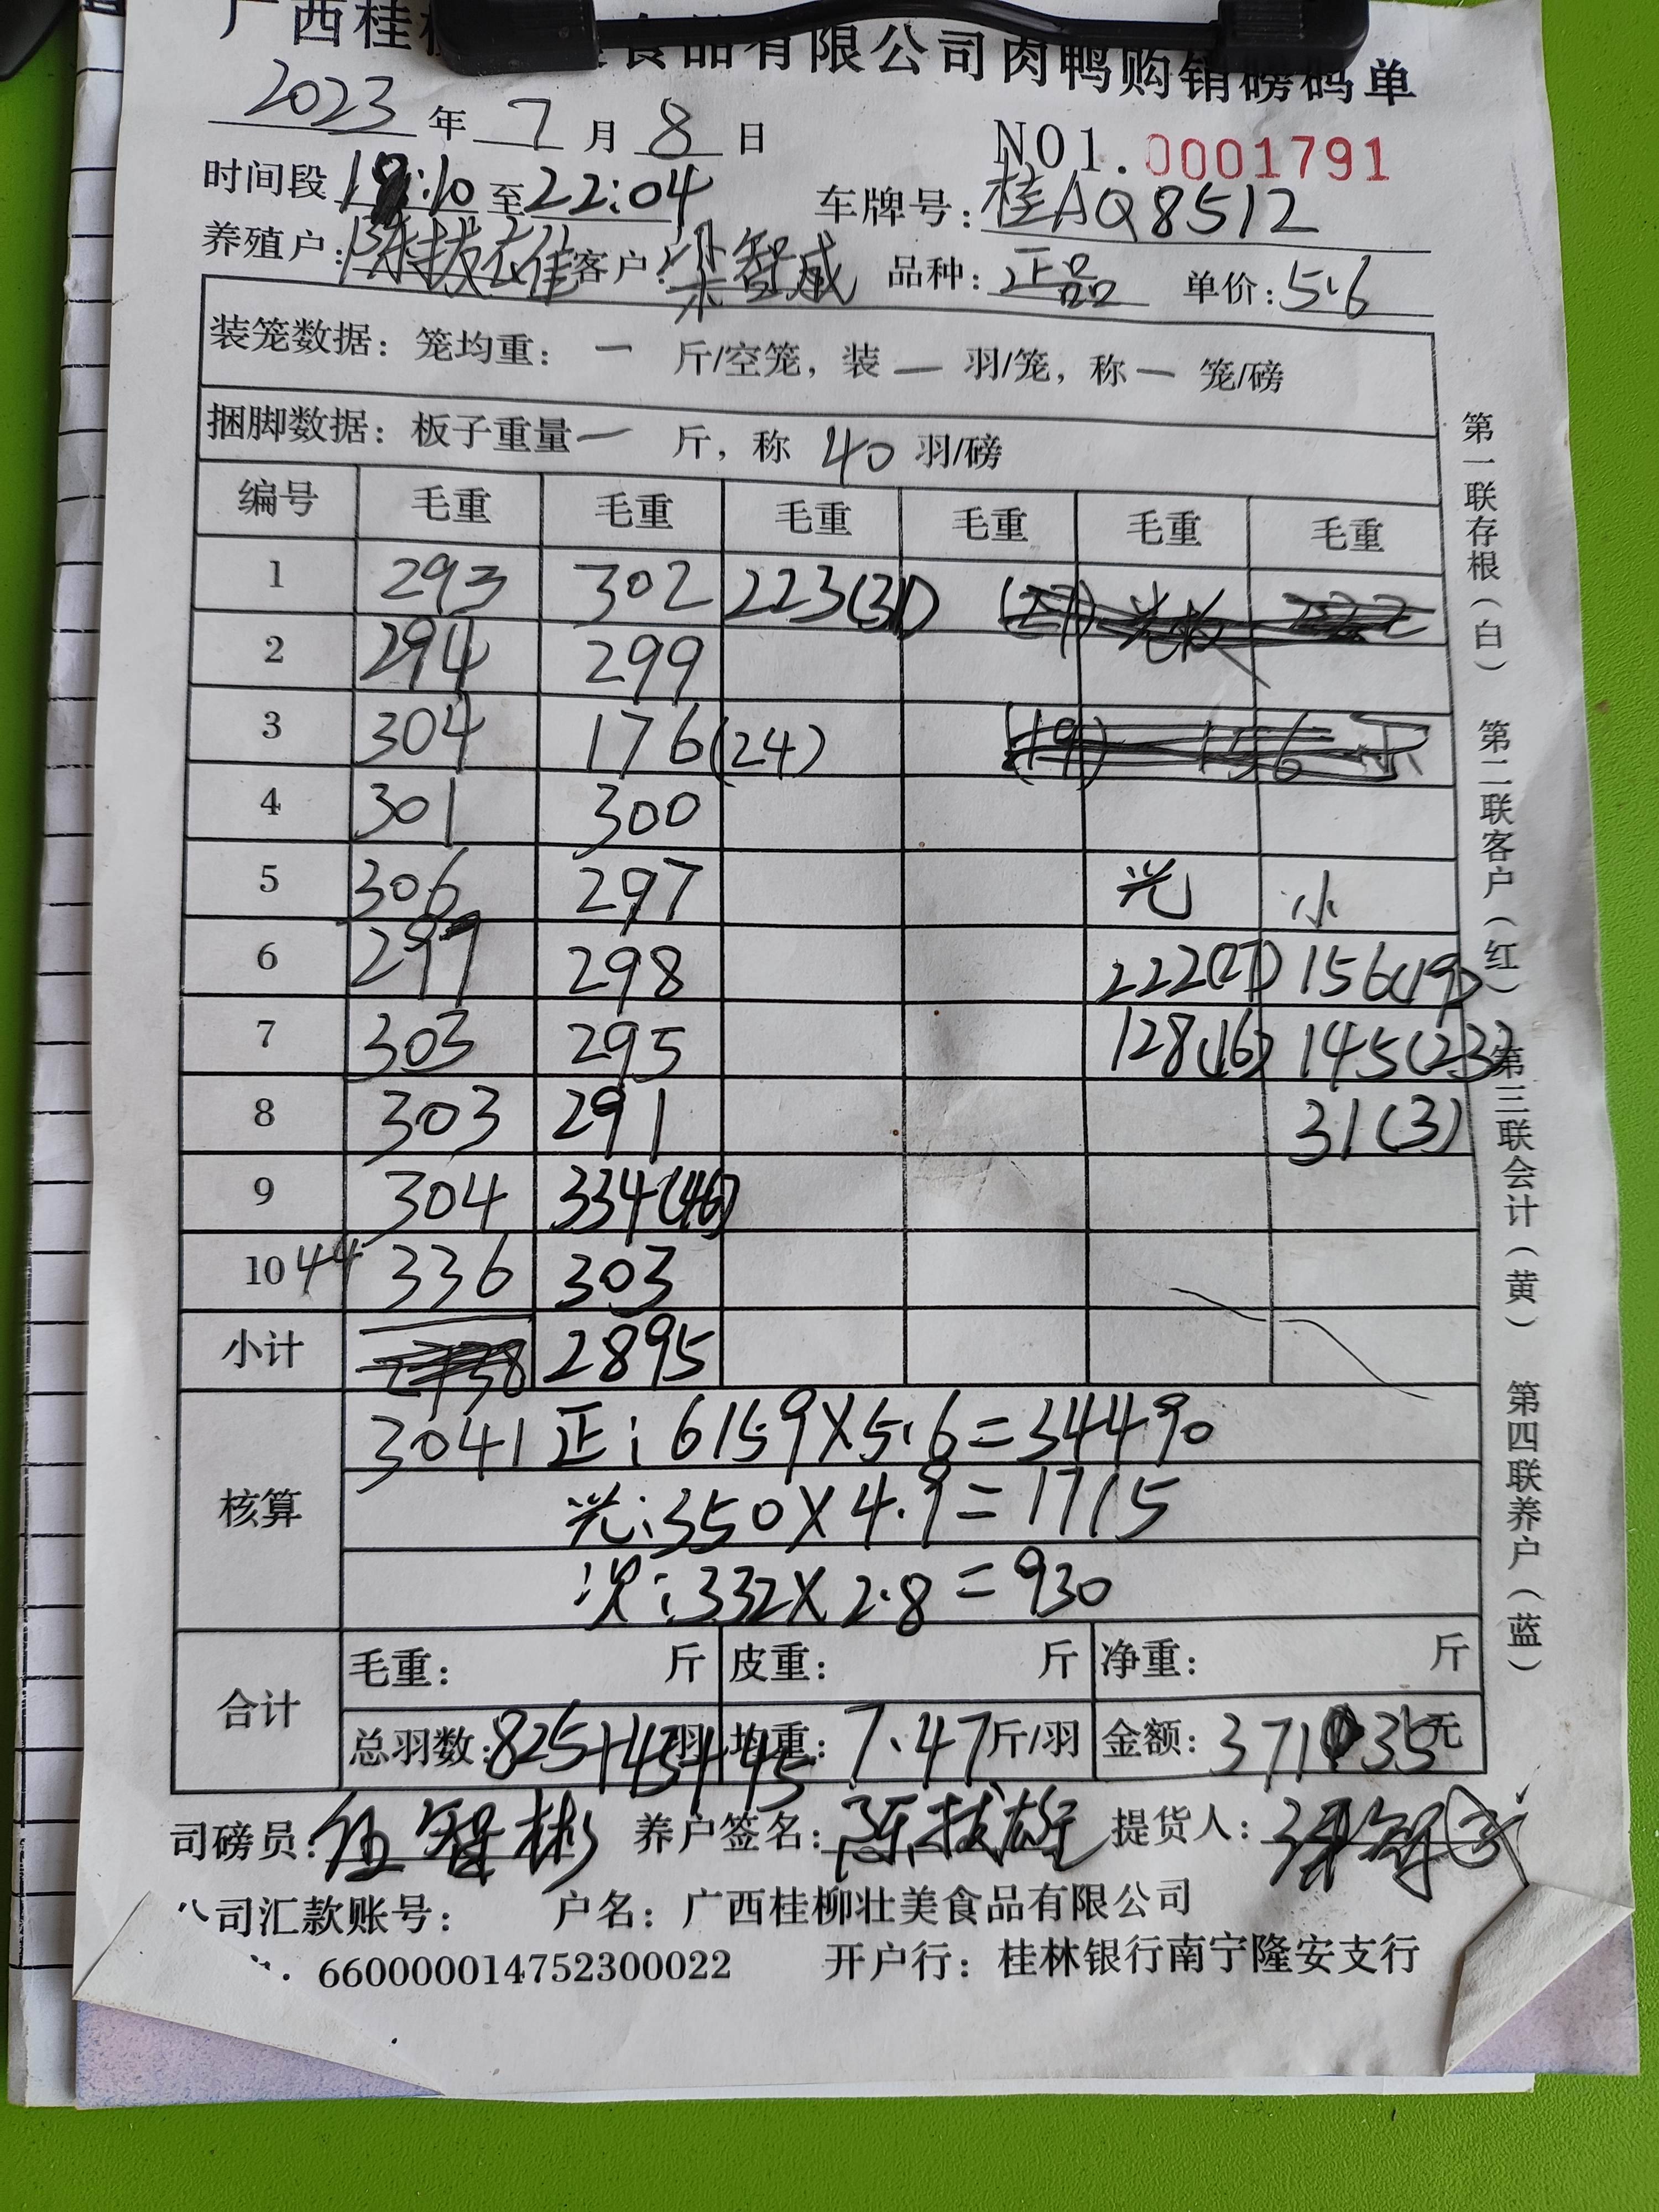 广西桂 食品有限公司肉鸭购销磅码单
2023年7月8日 NO1.0001791
时间段 :10至22:04 车牌号:桂AQ8512
养殖户:陈拔雄 客户:梁智威 品种:正品 单价:5.6
装笼数据:笼均重:一 斤/空笼,装一 羽/笼,称一 笼/磅
捆脚数据:板子重量一 斤,称 40 羽/磅
编号 毛重 毛重 毛重 毛重 毛重 毛重
1 293 302 223(31)
2 294 299
3 304 176(24)
4 301 300
5 306 297 光 小
6 297 298 222(27) 156(19)
7 303 295 128(16) 145(23)
8 303 291 31(3)
9 304 334(46)
10 44 336 303
小计 2895
3041 正:6159×5.6=34490
核算 光:350×4.9=1715
次:332×2.8=930
合计 毛重: 斤 皮重: 斤 净重: 斤
总羽数:825+43+45羽 均重:7.47斤/羽 金额:37135元
司磅员:伍智彬 养户签名:陈拔雄 提货人:
司汇款账号: 户名:广西桂柳壮美食品有限公司
660000014752300022 开户行:桂林银行南宁隆安支行
第一联存根(白) 第二联客户(红) 第三联会计(黄) 第四联养户(蓝)